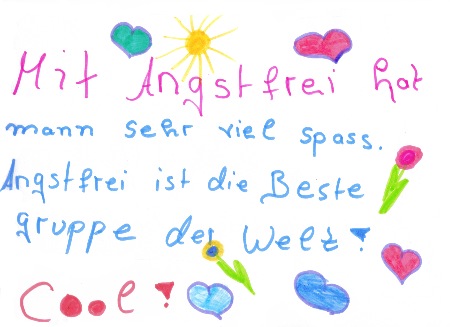 Mit Angstfrei hat
mann sehr viel spass.
Angstfrei ist die Beste
gruppe der Welt!
Cool!